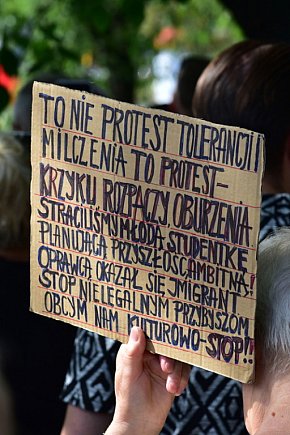 TO NIE PROTEST TOLERANCJI I
MILCZENIA TO PROTEST-
KRZYKU, ROZPACZY, OBURZENIA
STRACILIŚMY MŁODĄ STUDENTKĘ
PLANUJĄCĄ PRZYSZŁOŚĆ AMBITNĄ!
OPRAWCĄ OKAZAŁ SIĘ IMIGRANT
STOP NIELEGALNYM PRZYBYSZOM
OBCYM NAM KULTUROWO-STOP!!